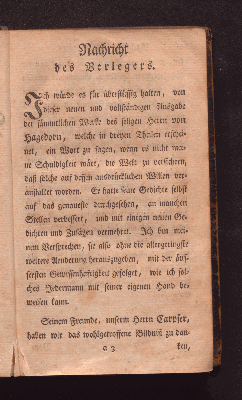 Nachricht
des Verlegers.
Ich würde es für überflüssig halten, von
dieser neuen und vollständigen Ausgabe
der sämmtlichen Werke des seligen Herrn von
Hagedorn, welche in dreyen Theilen erschei-
net, ein Wort zu sagen, wenn es nicht mei-
ne Schuldigkeit wäre, die Welt zu versichern,
daß solche auf dessen ausdrücklichen Willen ver-
anstaltet worden. Er hatte seine Gedichte selbst
auf das genaueste durchgesehen, an manchen
Stellen verbessert, und mit einigen neuen Ge-
dichten und Zusätzen vermehrt. Ich bin mei-
nem Versprechen, sie also ohne die allergeringste
weitere Aenderung herauszugeben, mit der äus-
sersten Gewissenhaftigkeit gefolget, wie ich sol-
ches Jedermann mit seiner eigenen Hand be-
weisen kann.
Seinem Freunde, unserm Herrn Carpser,
haben wir das wohlgetroffene Bildniß zu dan-
a 3 ken,